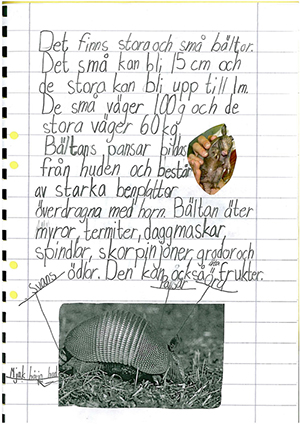 Det finns stora och små bältor.
Det små kan bli 15 cm och
de stora kan bli upp till 1m.
De små väger 100g och de
stora väger 60kg
Bältans pansar bildas
från huden och består
av starka benplattor
överdragna med horn. Bältan äter
myror, termiter, daggmaskar,
spindlar, skorpinjoner grodor och
ödlor. Den kan också äta frukter.
Svans
Pansar
Mjuk hårig hud